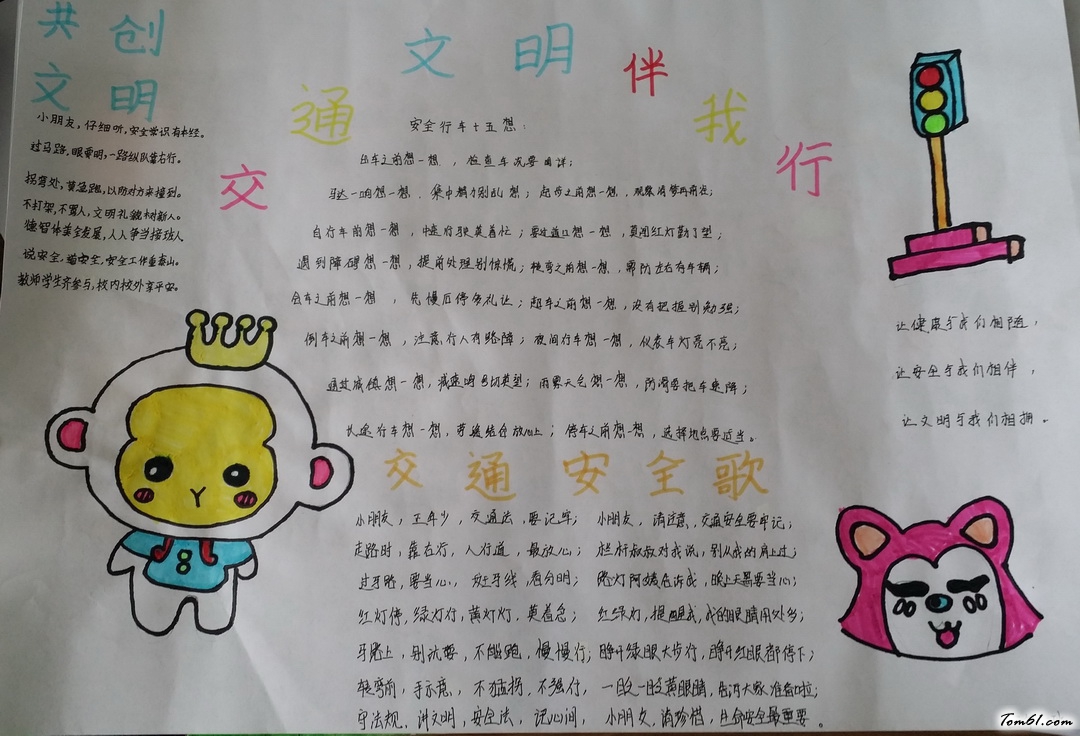 共创
文明
交通文明伴我行
小朋友,仔细听,安全常识有本经。
过马路,眼要明,一路纵队靠右行。
拐弯处,莫急跑,以防对方来撞到。
不打架,不骂人,文明礼貌树新人。
德智体美全发展,人人争当接班人
说安全,道安全,安全工作重泰山。
教师学生齐参与,校内校外享平安。
安全行车十五想:
出车之前想一想,检查车况要周详;
马达一响想一想,集中精力别乱想;起步之前想一想,观察清楚再前进;
自行车前想一想,中速行驶莫着忙;要过道口想一想,莫闯红灯勤了望;
遇到障碍想一想,提前处理别惊慌;转弯之前想一想,需防左右有车辆;
会车之前想一想,先慢后停多礼让;超车之前想一想,没有把握别勉强;
倒车之前想一想,注意行人有路障;夜间行车想一想,仪表车灯亮不亮;
通过城镇想一想,减速鸣号切莫望;雨雾天气想一想,防滑要把车速降;
长途行车想一想,劳逸结合放心上;停车之前想一想,选择地点要适当。
让健康与我们相随,
让安全与我们相伴,
让文明与我们相拥。
交通安全歌
小朋友,正年少,交通法,要记牢;小朋友,请注意,交通安全要牢记;
走路时,靠右行,人行道,最放心;栏杆叔叔对我说,别从我的肩上过;
过马路,要当心,斑马线,看分明;路灯阿姨告诉我,晚上天黑要当心;
红灯停,绿灯行,黄灯灯,莫着急;红绿灯,提醒我,我的眼睛用处多;
马路上,别玩耍,不能跑,慢慢行;睁开绿眼大步行,睁开红眼都停下;
转弯前,手示意,不猛拐,不强行,一眨一眨黄眼睛,告诉大家准备啦;
守法规,讲文明,安全法,记心间,小朋友,请珍惜,生命安全最重要。
Tom61.com